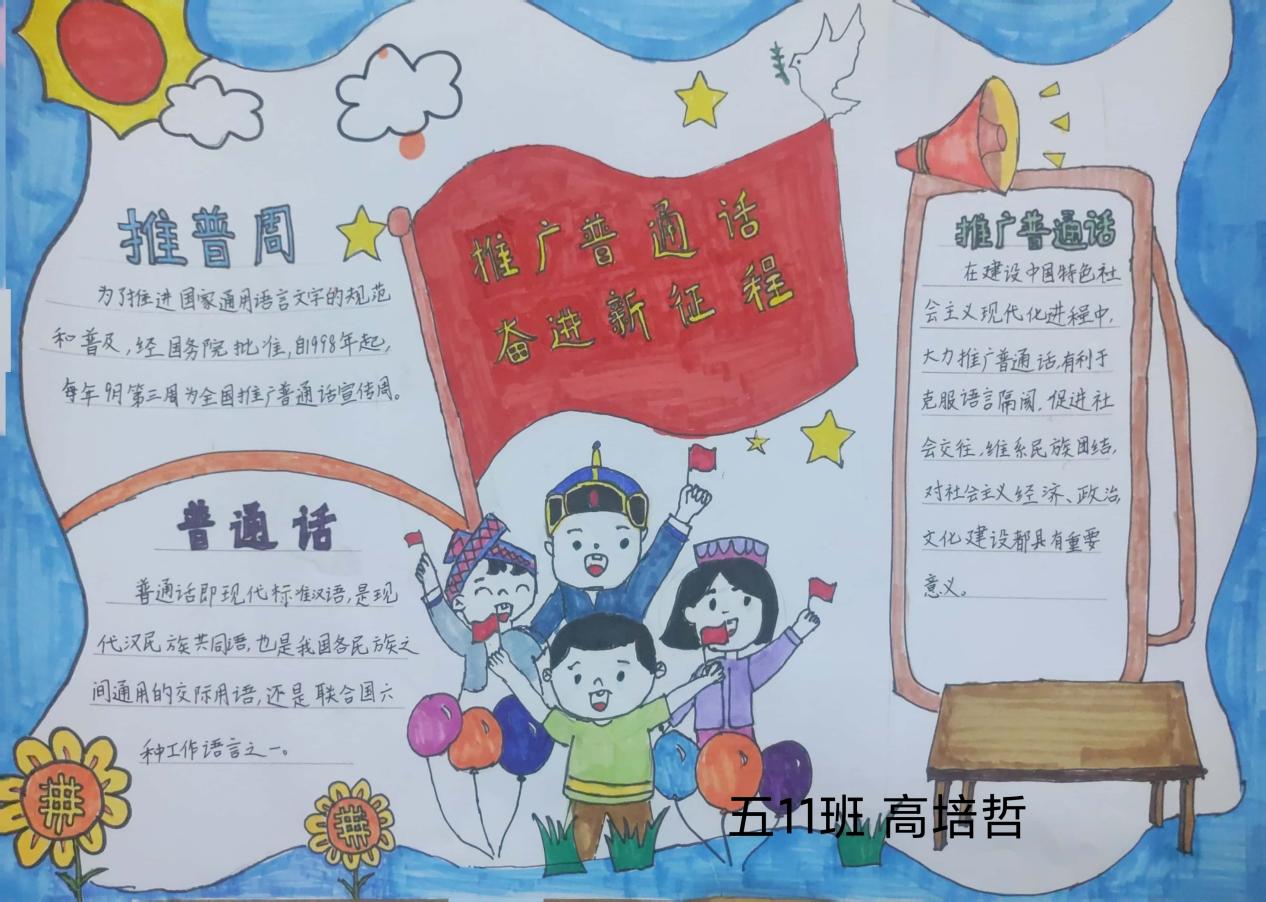 推普周
为了推进国家通用语言文字的规范
和普及，经国务院批准，自1998年起，
每年9月第三周为全国推广普通话宣传周。
推广普通话
奋进新征程
普通话
普通话即现代标准汉语，是现
代汉民族共同语，也是我国各民族之
间通用的交际用语，还是联合国六
种工作语言之一。
推广普通话
在建设中国特色社
会主义现代化进程中，
大力推广普通话，有利于
克服语言隔阂，促进社
会交往，维系民族团结，
对社会主义经济、政治，
文化建设都具有重要
意义。
五11班 高培哲